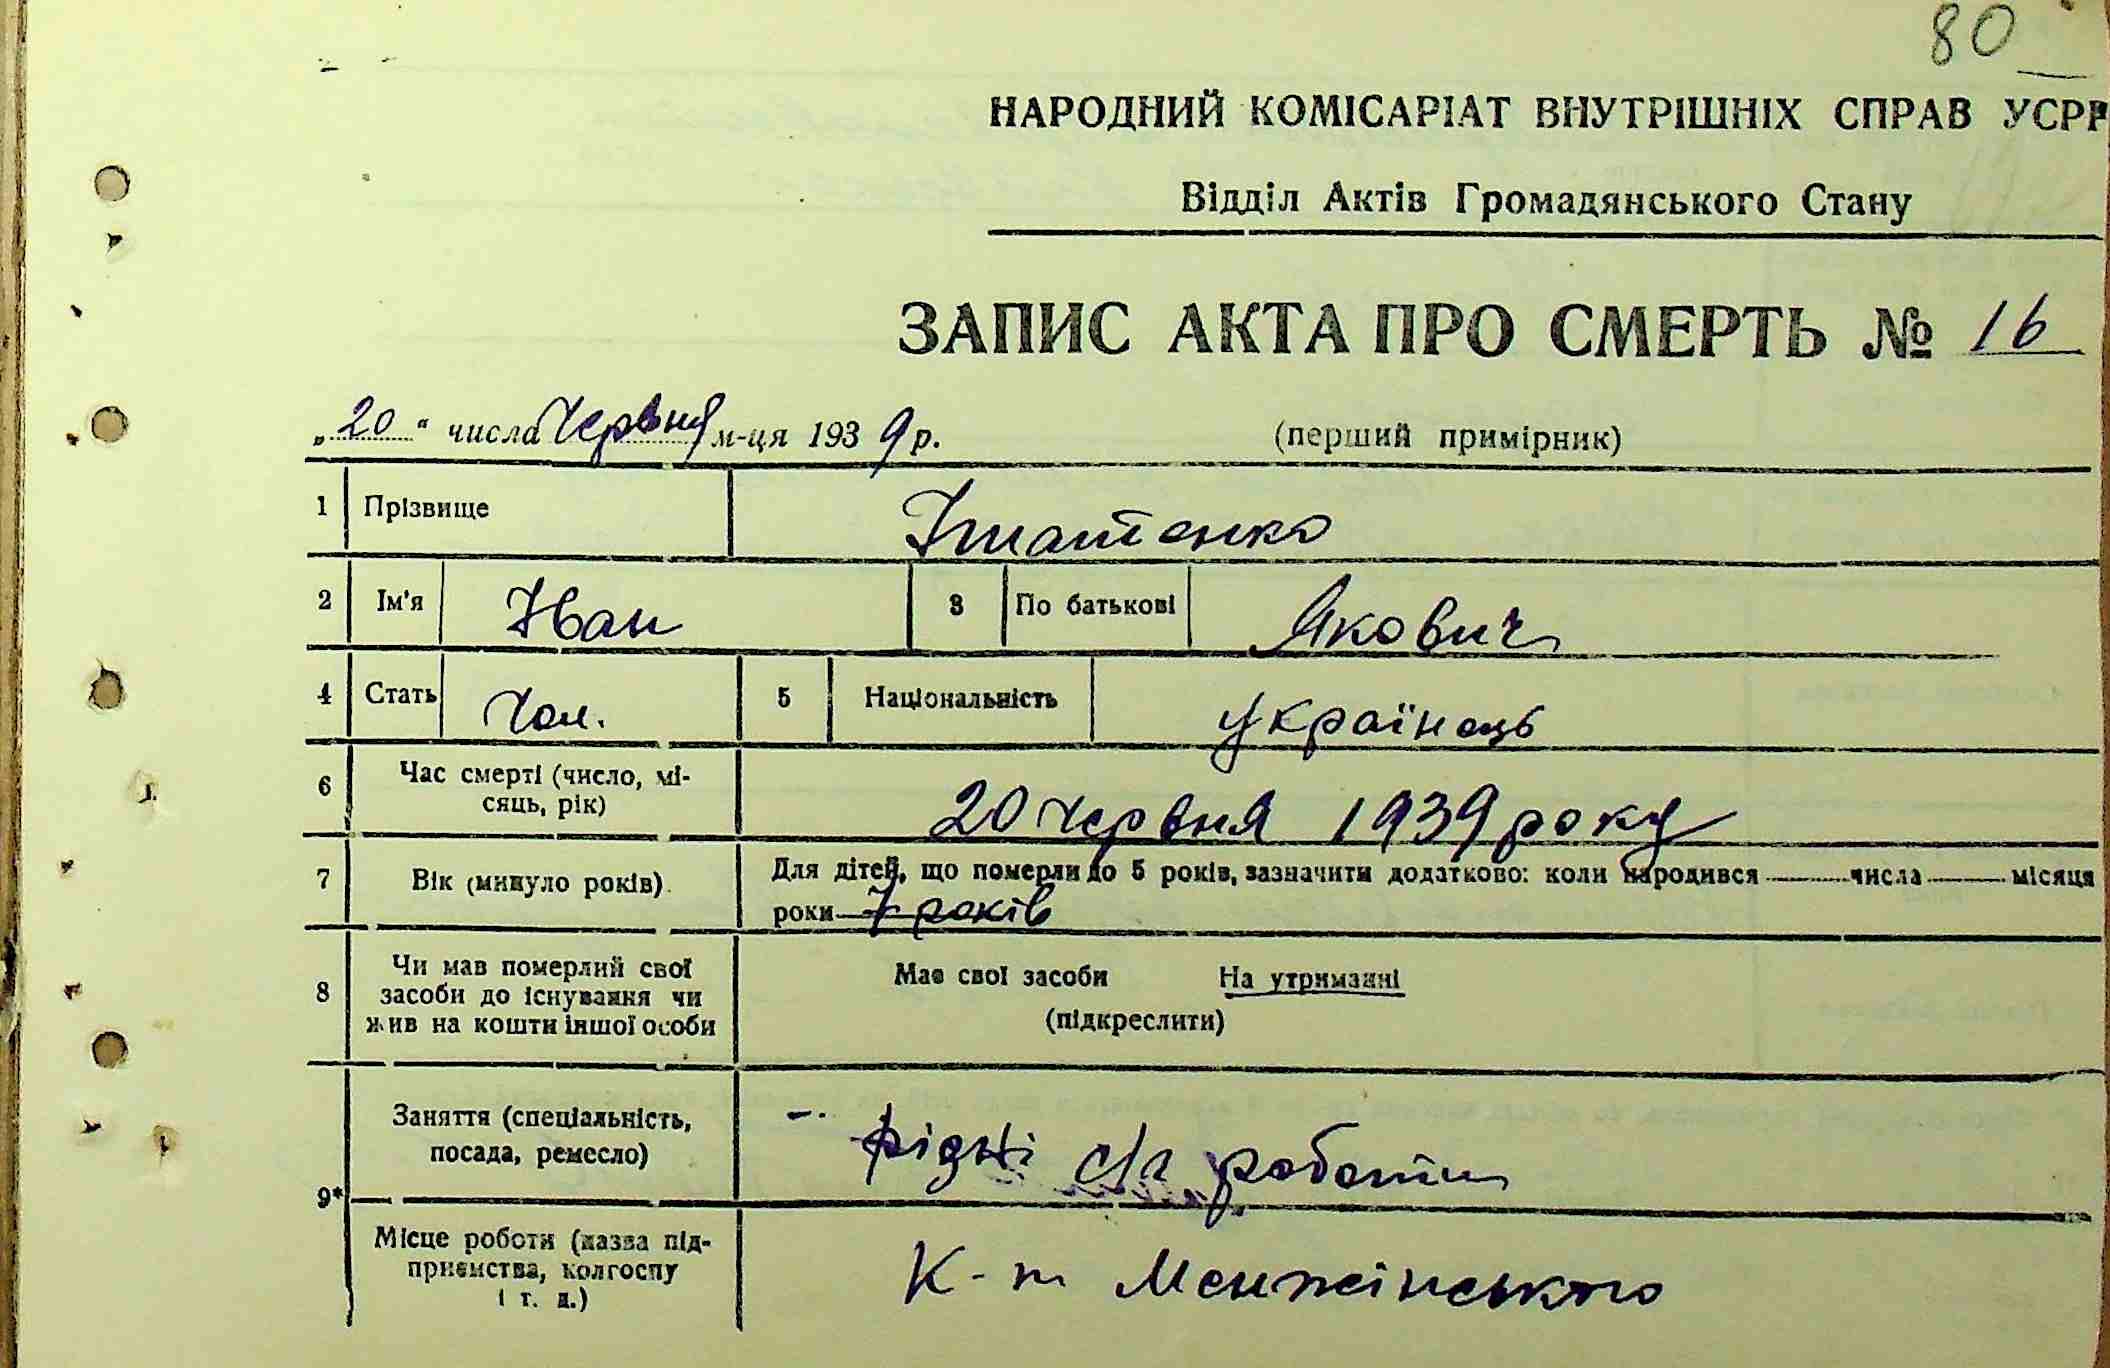 80
НАРОДНИЙ КОМІСАРІАТ ВНУТРІШНІХ СПРАВ УСРР
Відділ Актів Громадянського Стану
ЗАПИС АКТА ПРО СМЕРТЬ № 16
„20“ числа Червня м-ця 1939 р. (перший примірник)
1 Прізвище Ігнатенко
2 Ім'я Іван 3 По батькові Якович
4 Стать Чол. 5 Національність українець
6 Час смерті (число, мі-
сяць, рік)
20 червня 1939 року
7 Вік (минуло років). Для дітей, що померли до 5 років, зазначити додатково: коли народився числа місяця
роки 7 років
8 Чи мав померлий свої
засоби до існування чи
жив на кошти іншої особи
Має свої засоби На утриманні
(підкреслити)
9*
Заняття (спеціальність,
посада, ремесло)
— різні с/г роботи
Місце роботи (назва під-
приємства, колгоспу
і т. д.)
К-п Менжінського